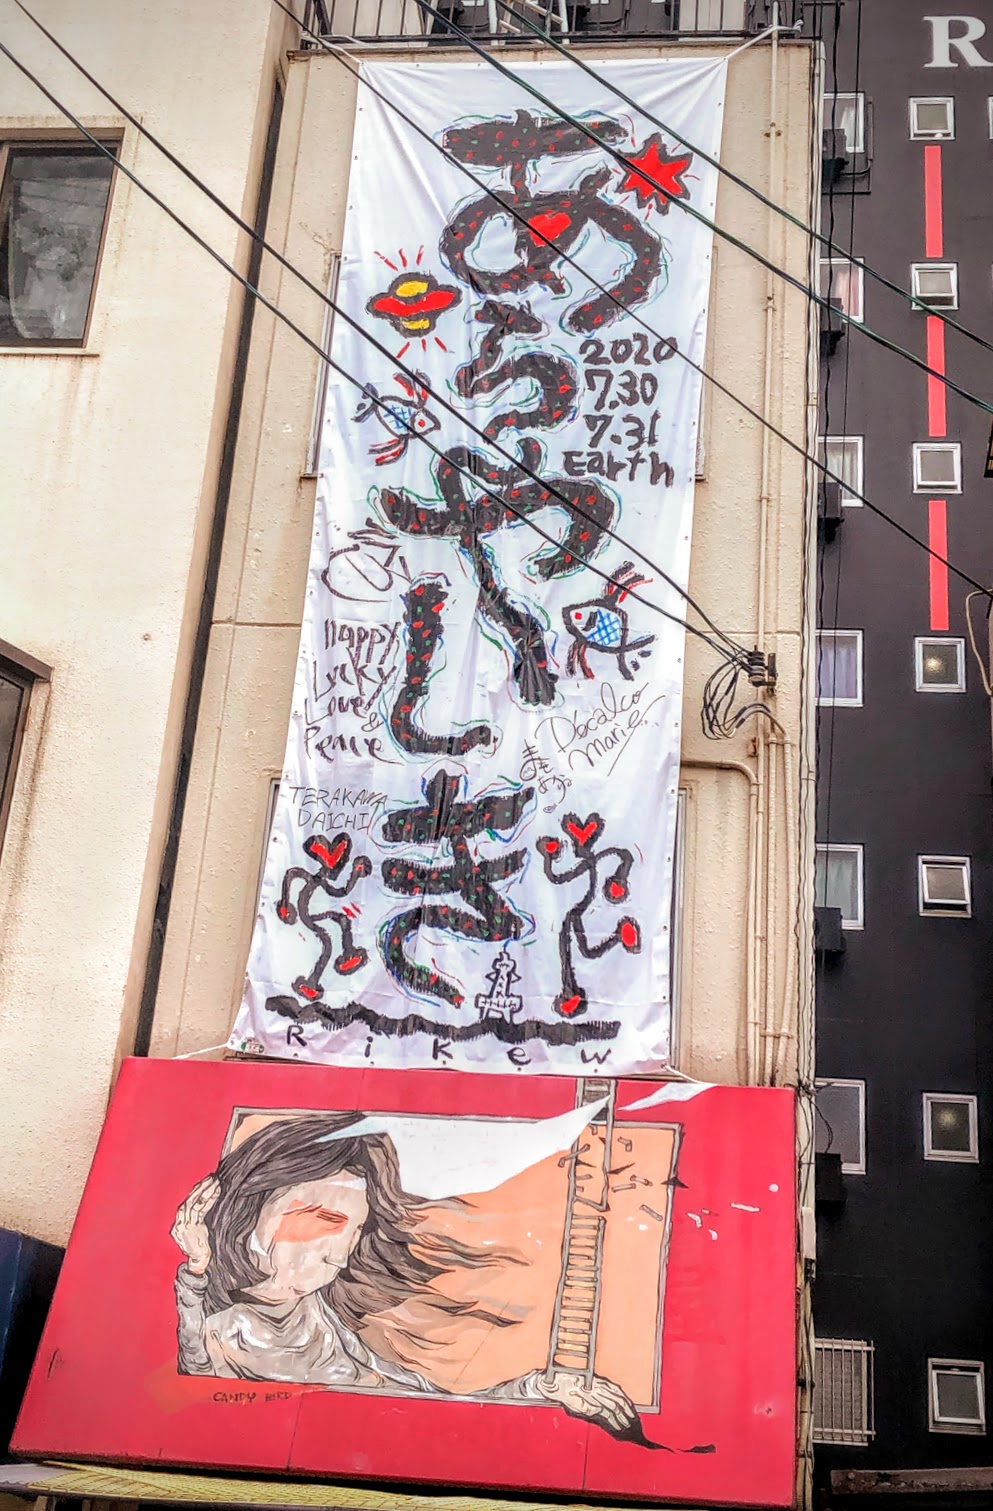 R
あらやしき
2020
7.30
7.31
Earth
Happy
Lucky
Love &
Peace
Marie
TERAKAWA
DAICHI
Rikew
CANDY BIRD